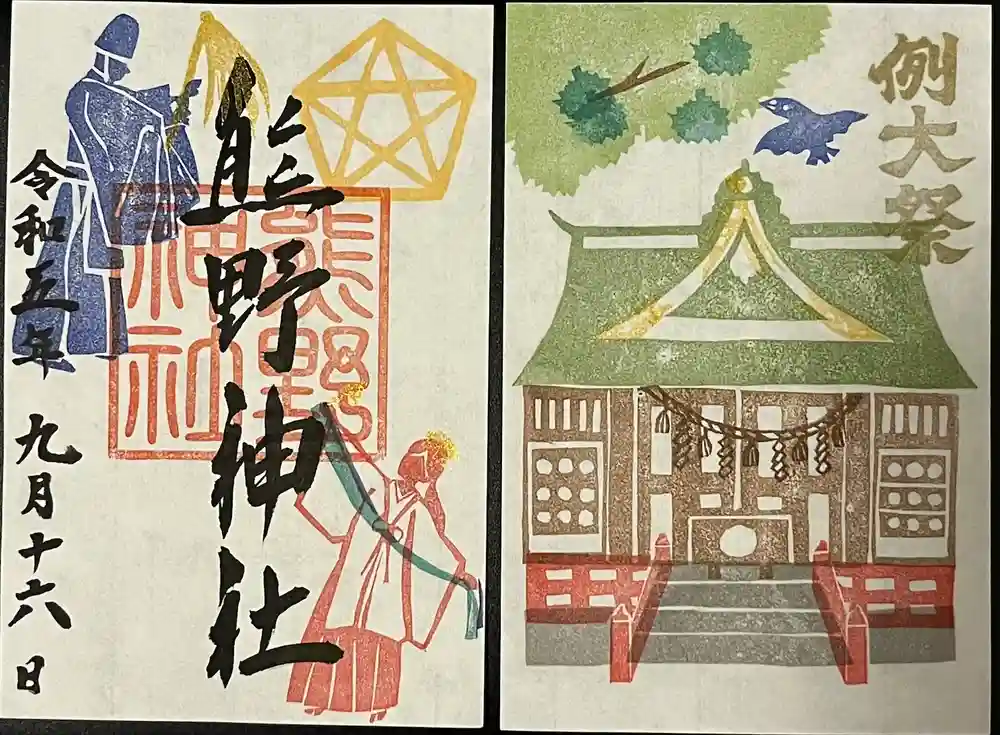 例大祭
熊野神社
熊野神社
令和五年 九月十六日